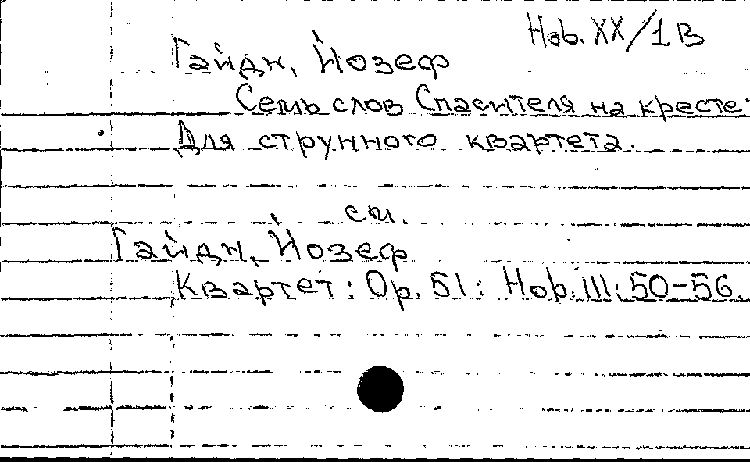 Hob. XX/1B
Гайдн, Йозеф
Семь слов Спасителя на кресте:
Для струнного квартета.
см.
Гайдн, Йозеф
Квартет: Op. 51: Hob. III: 50-56.